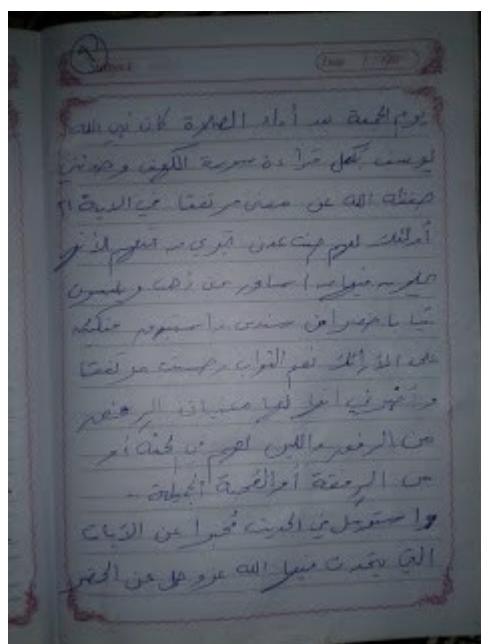 ٩
Subject
Date / /
يوم الجمعة بعد أداء الصلاة كان نبي الله
يوسف يكمل قراءة سورة الكهف وحدثني
حفظه الله عن معنى مرتفقا في الآية ٣١
أولئك لهم جنت عدن تجري من تحتهم الأنهر
يحلون فيها من أساور من ذهب ويلبسون
ثيابا خضرا من سندس واستبرق متكئين
على الأرائك نعم الثواب وحسنت مرتفقا
وأخبرني انها لها معنيان
من الرفق واللين لهم في الجنة أو
من الرفقة أو الصحبة الجميلة ..
واسترسل في الحديث مخبرا عن الآيات
التي يتحدث فيها الله عز وجل عن الخضر